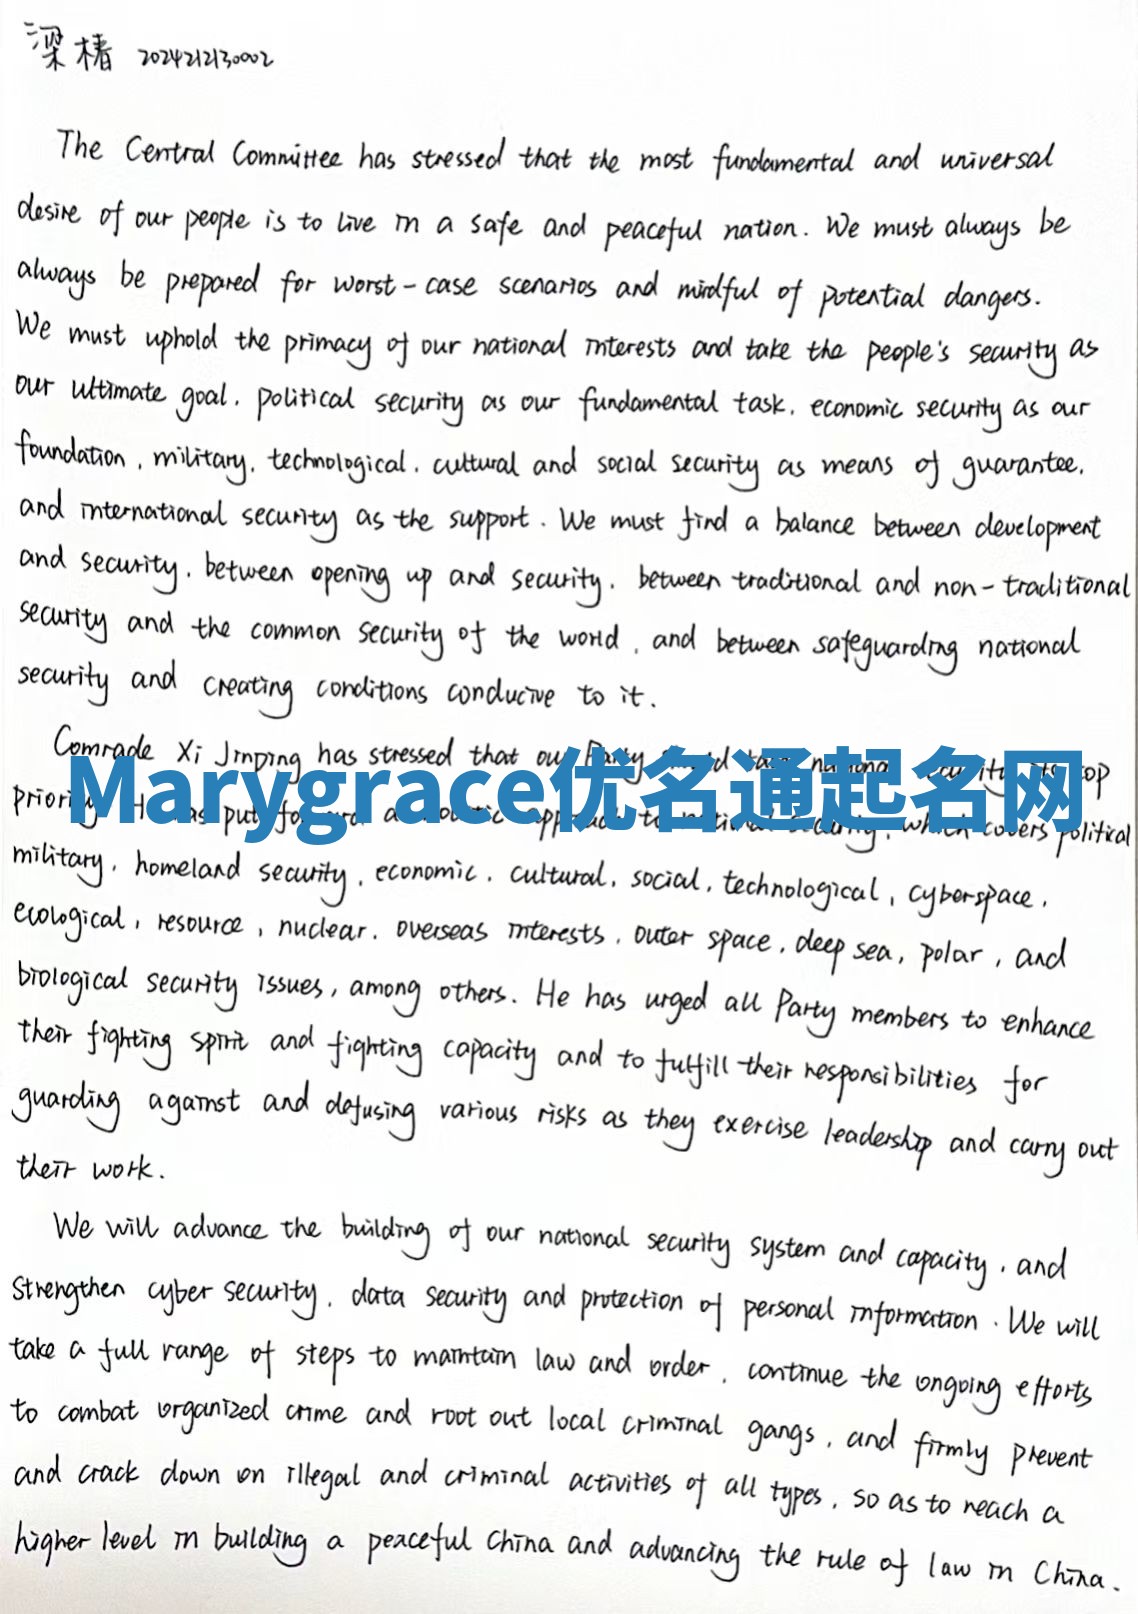 梁椿 2024212130002
The Central Committee has stressed that the most fundamental and universal
desire of our people is to live in a safe and peaceful nation. We must always be
always be prepared for worst-case scenarios and mindful of potential dangers.
We must uphold the primacy of our national interests and take the people's security as
our ultimate goal, political security as our fundamental task, economic security as our
foundation, military, technological, cultural and social security as means of guarantee,
and international security as the support. We must find a balance between development
and security, between opening up and security, between traditional and non-traditional
security and the common security of the world, and between safeguarding national
security and creating conditions conducive to it.
Comrade Xi Jinping has stressed that our Party national security its top
Marygrace优名通起名网
priority. He has put forward a holistic approach to national security, which covers political
military, homeland security, economic, cultural, social, technological, cyberspace,
ecological, resource, nuclear, overseas interests, outer space, deep sea, polar, and
biological security issues, among others. He has urged all Party members to enhance
their fighting spirit and fighting capacity and to fulfill their responsibilities for
guarding against and defusing various risks as they exercise leadership and carry out
their work.
We will advance the building of our national security system and capacity, and
strengthen cyber security, data security and protection of personal information. We will
take a full range of steps to maintain law and order, continue the ongoing efforts
to combat organized crime and root out local criminal gangs, and firmly prevent
and crack down on illegal and criminal activities of all types, so as to reach a
higher level in building a peaceful China and advancing the rule of law in China.